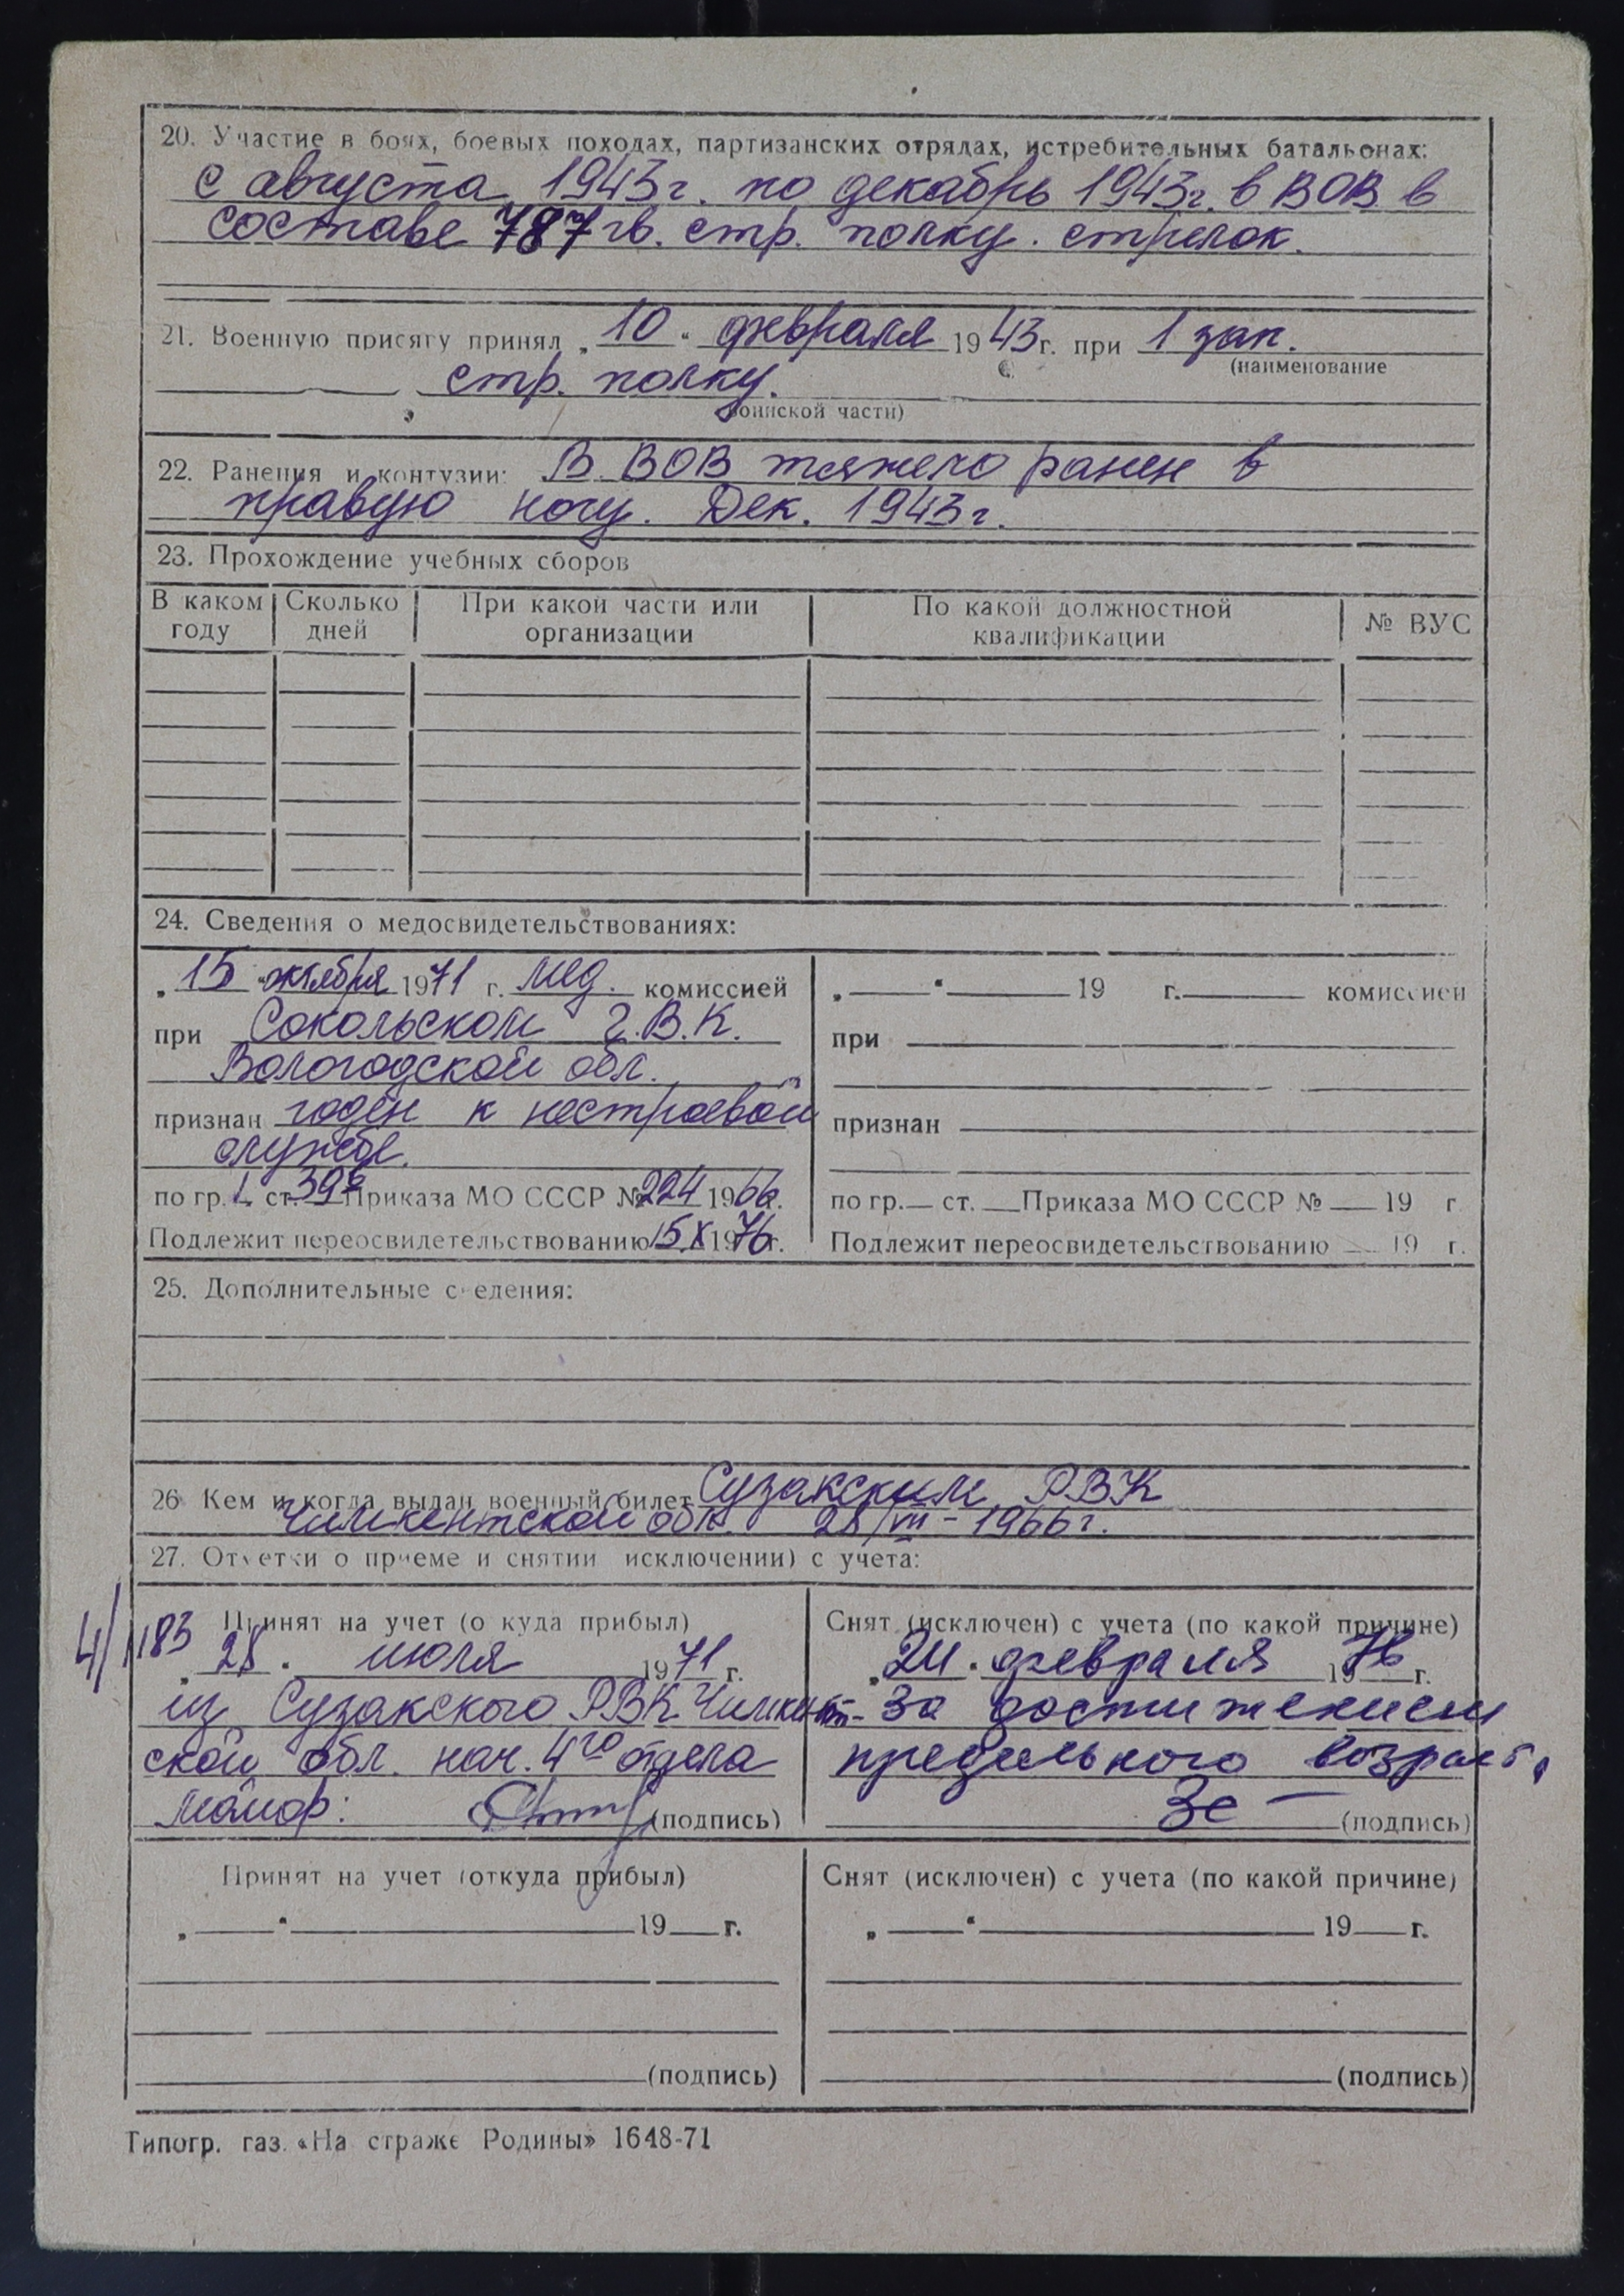 20. Участие в боях, боевых походах, партизанских отрядах, истребительных батальонах:
с августа 1943г. по декабрь 1943г. в ВОВ в
составе 787 гв. стр. полку. стрелок.
21. Военную присягу принял „10“ февраля 1943г. при 1 зап.
(наименование
стр. полку.
воинской части)
22. Ранения и контузии: В ВОВ тяжело ранен в
правую ногу. Дек. 1943г.
23. Прохождение учебных сборов
В каком году Сколько дней При какой части или организации По какой должностной квалификации № ВУС
24. Сведения о медосвидетельствованиях:
„15“ октября 1971 г. мед. комиссией
при Сокольском г.В.К.
Вологодской обл.
признан годен к нестроевой
службе.
по гр. I ст. 39в Приказа МО СССР № 224 1966г.
Подлежит переосвидетельствованию 15.X 1976г.
„ “ 19 г. комиссией
при
признан
по гр. ст. Приказа МО СССР № 19 г
Подлежит переосвидетельствованию 19 г.
25. Дополнительные с едения:
26 Кем и когда выдан военный билет Сузакским РВК
Чимкентской обл. 28/VII-1966г.
27. Отметки о приеме и снятии исключении) с учета:
4/1183
Принят на учет (о куда прибыл)
„28“ июля 1971 г.
из Сузакского РВК Чимкент-
ской обл. нач. 4го отдела
Майор: (подпись)
Снят (исключен) с учета (по какой причине)
„24“ февраля 1976 г.
За достижением
предельного возраст.
(подпись)
Принят на учет (откуда прибыл)
„ “ 19 г.
(подпись)
Снят (исключен) с учета (по какой причине)
„ “ 19 г.
(подпись)
Типогр. газ. «На страже Родины» 1648-71